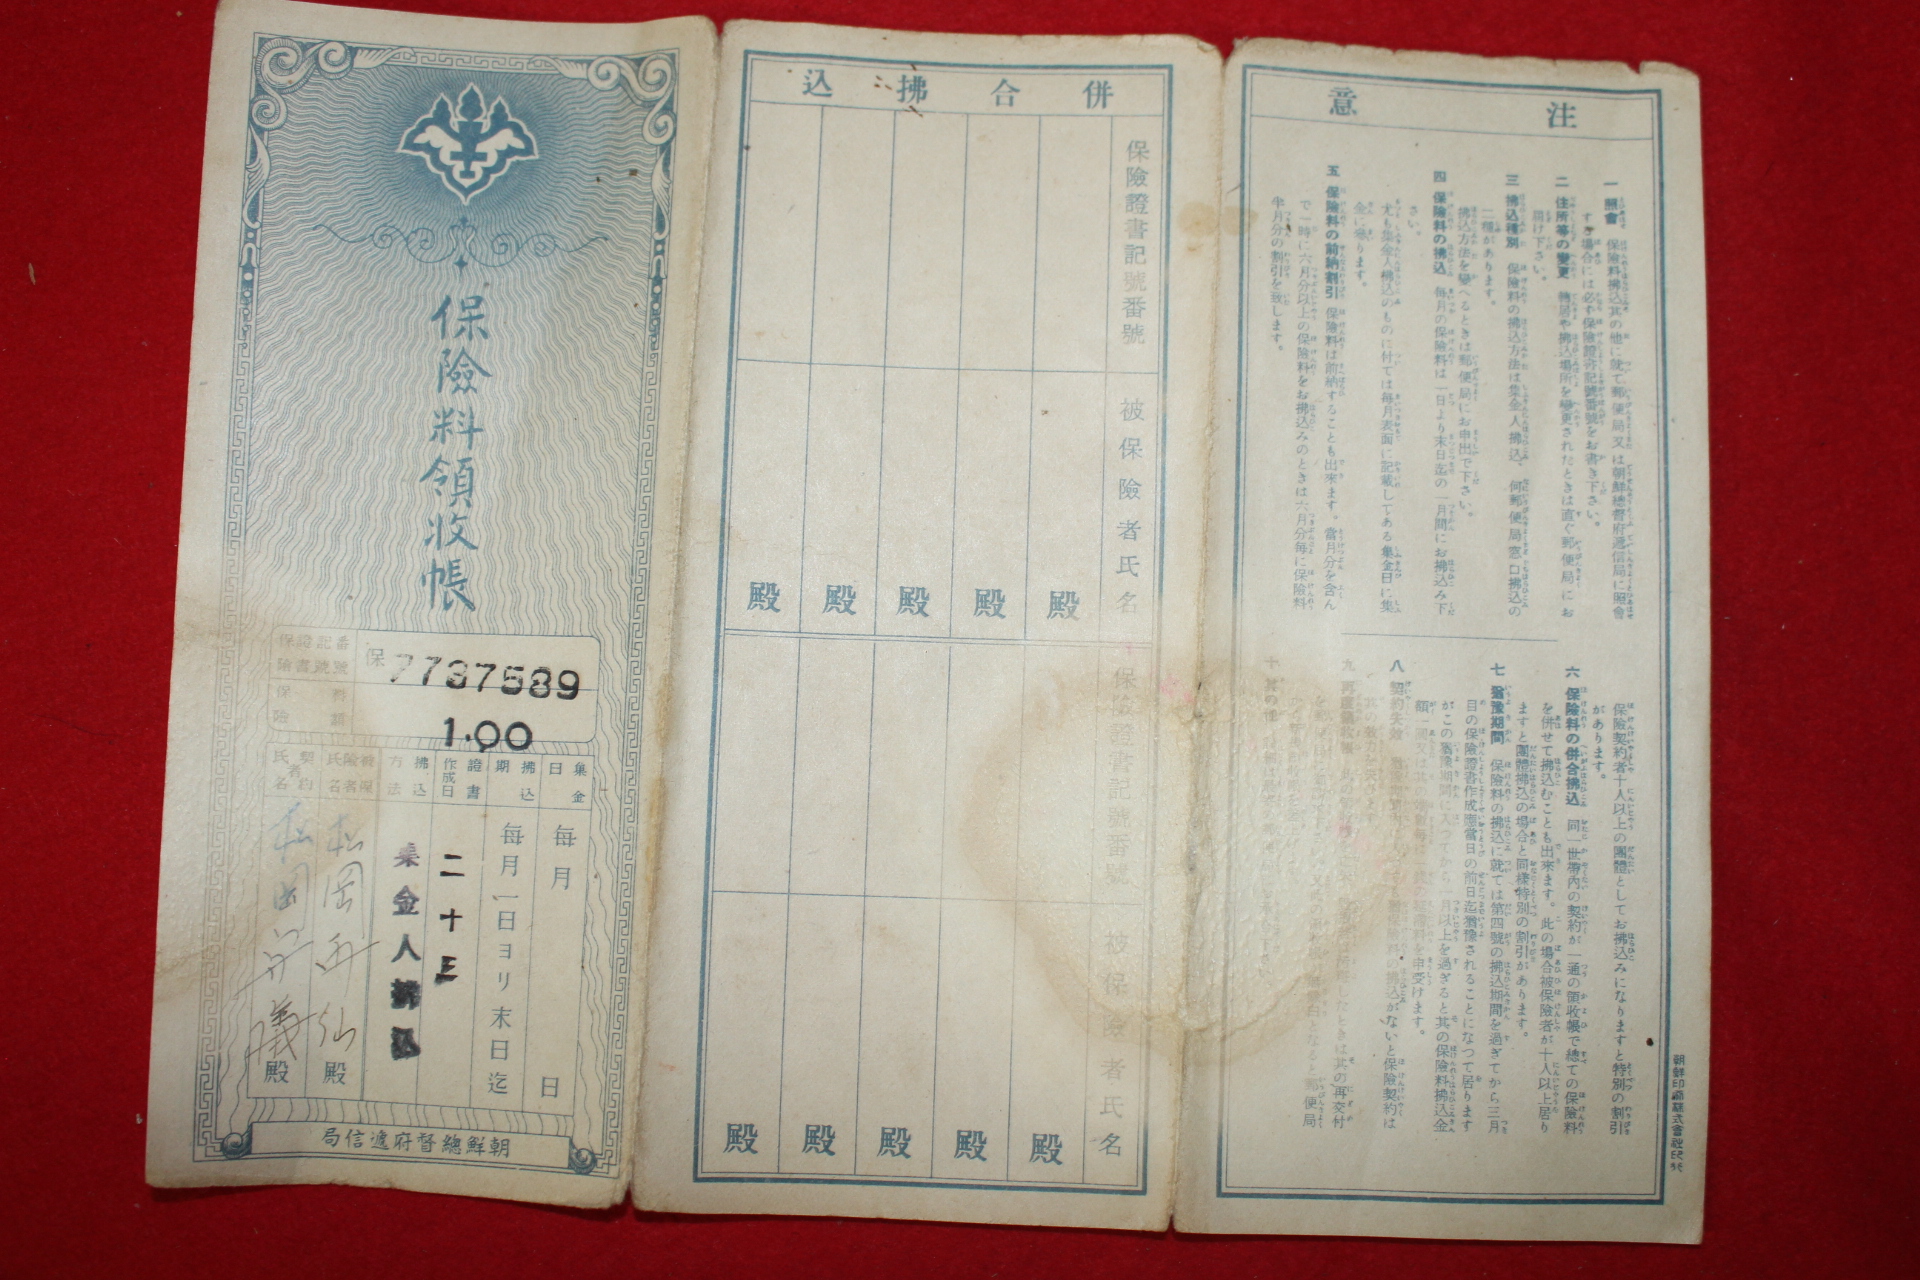 保險料領收帳
保險證書記號番號
保 7737589
保險料額
1.00
集金日
每月 日
拂込期
每月一日ヨリ末日迄
證書作成日
二十三
拂込方法
集金人拂込
被保險者氏名
松岡 殿
契約者氏名
松岡 義 殿
朝鮮總督府遞信局
併合拂込
保險證書記號番號
被保險者氏名
殿
殿
殿
殿
殿
保險證書記號番號
被保險者氏名
殿
殿
殿
殿
殿
注意
一 照會 保險料拂込其の他に就て郵便局又は朝鮮總督府遞信局に照會
する場合には必ず保險證書記號番號をお書き下さい。
二 住所等の變更 轉居や拂込場所を變更されたときは直ぐ郵便局にお
屆け下さい。
三 拂込種別 保險料の拂込方法は集金人拂込、何郵便局窓口拂込の
二種があります。
拂込方法を變へるときは郵便局にお申出で下さい。
四 保險料の拂込 每月の保險料は一日より末日迄の一月間にお拂込み下
さい。
尤も集金人拂込のものに付ては每月表面に記載してある集金日に集
金に參ります。
五 保險料の前納割引 保險料は前納することも出來ます。當月分を含ん
で一時に六月分以上の保險料をお拂込みのときは六月分每に保險料
半月分の割引を致します。
保險契約者十人以上の團體としてお拂込みになりますと特別の割引
があります。
六 保險料の併合拂込 同一世帶內の契約が一通の領收帳で總ての保險料
を併せて拂込むことも出來ます。此の場合被保險者が十人以上居り
ますと團體拂込の場合と同樣特別の割引があります。
七 猶豫期間 保險料の拂込に就ては第四號の拂込期間を過ぎてから三月
目の保險證書作成應當日の前日迄猶豫されることになつて居ります
がこの猶豫期間に入つてから一月以上を過ぎると其の保險料拂込金
額
八 契約失效
拂込がないと保險契約は
九 再度領收帳
たときは其の再交付
郵便局
十 其の他
朝鮮印刷株式會社印刷